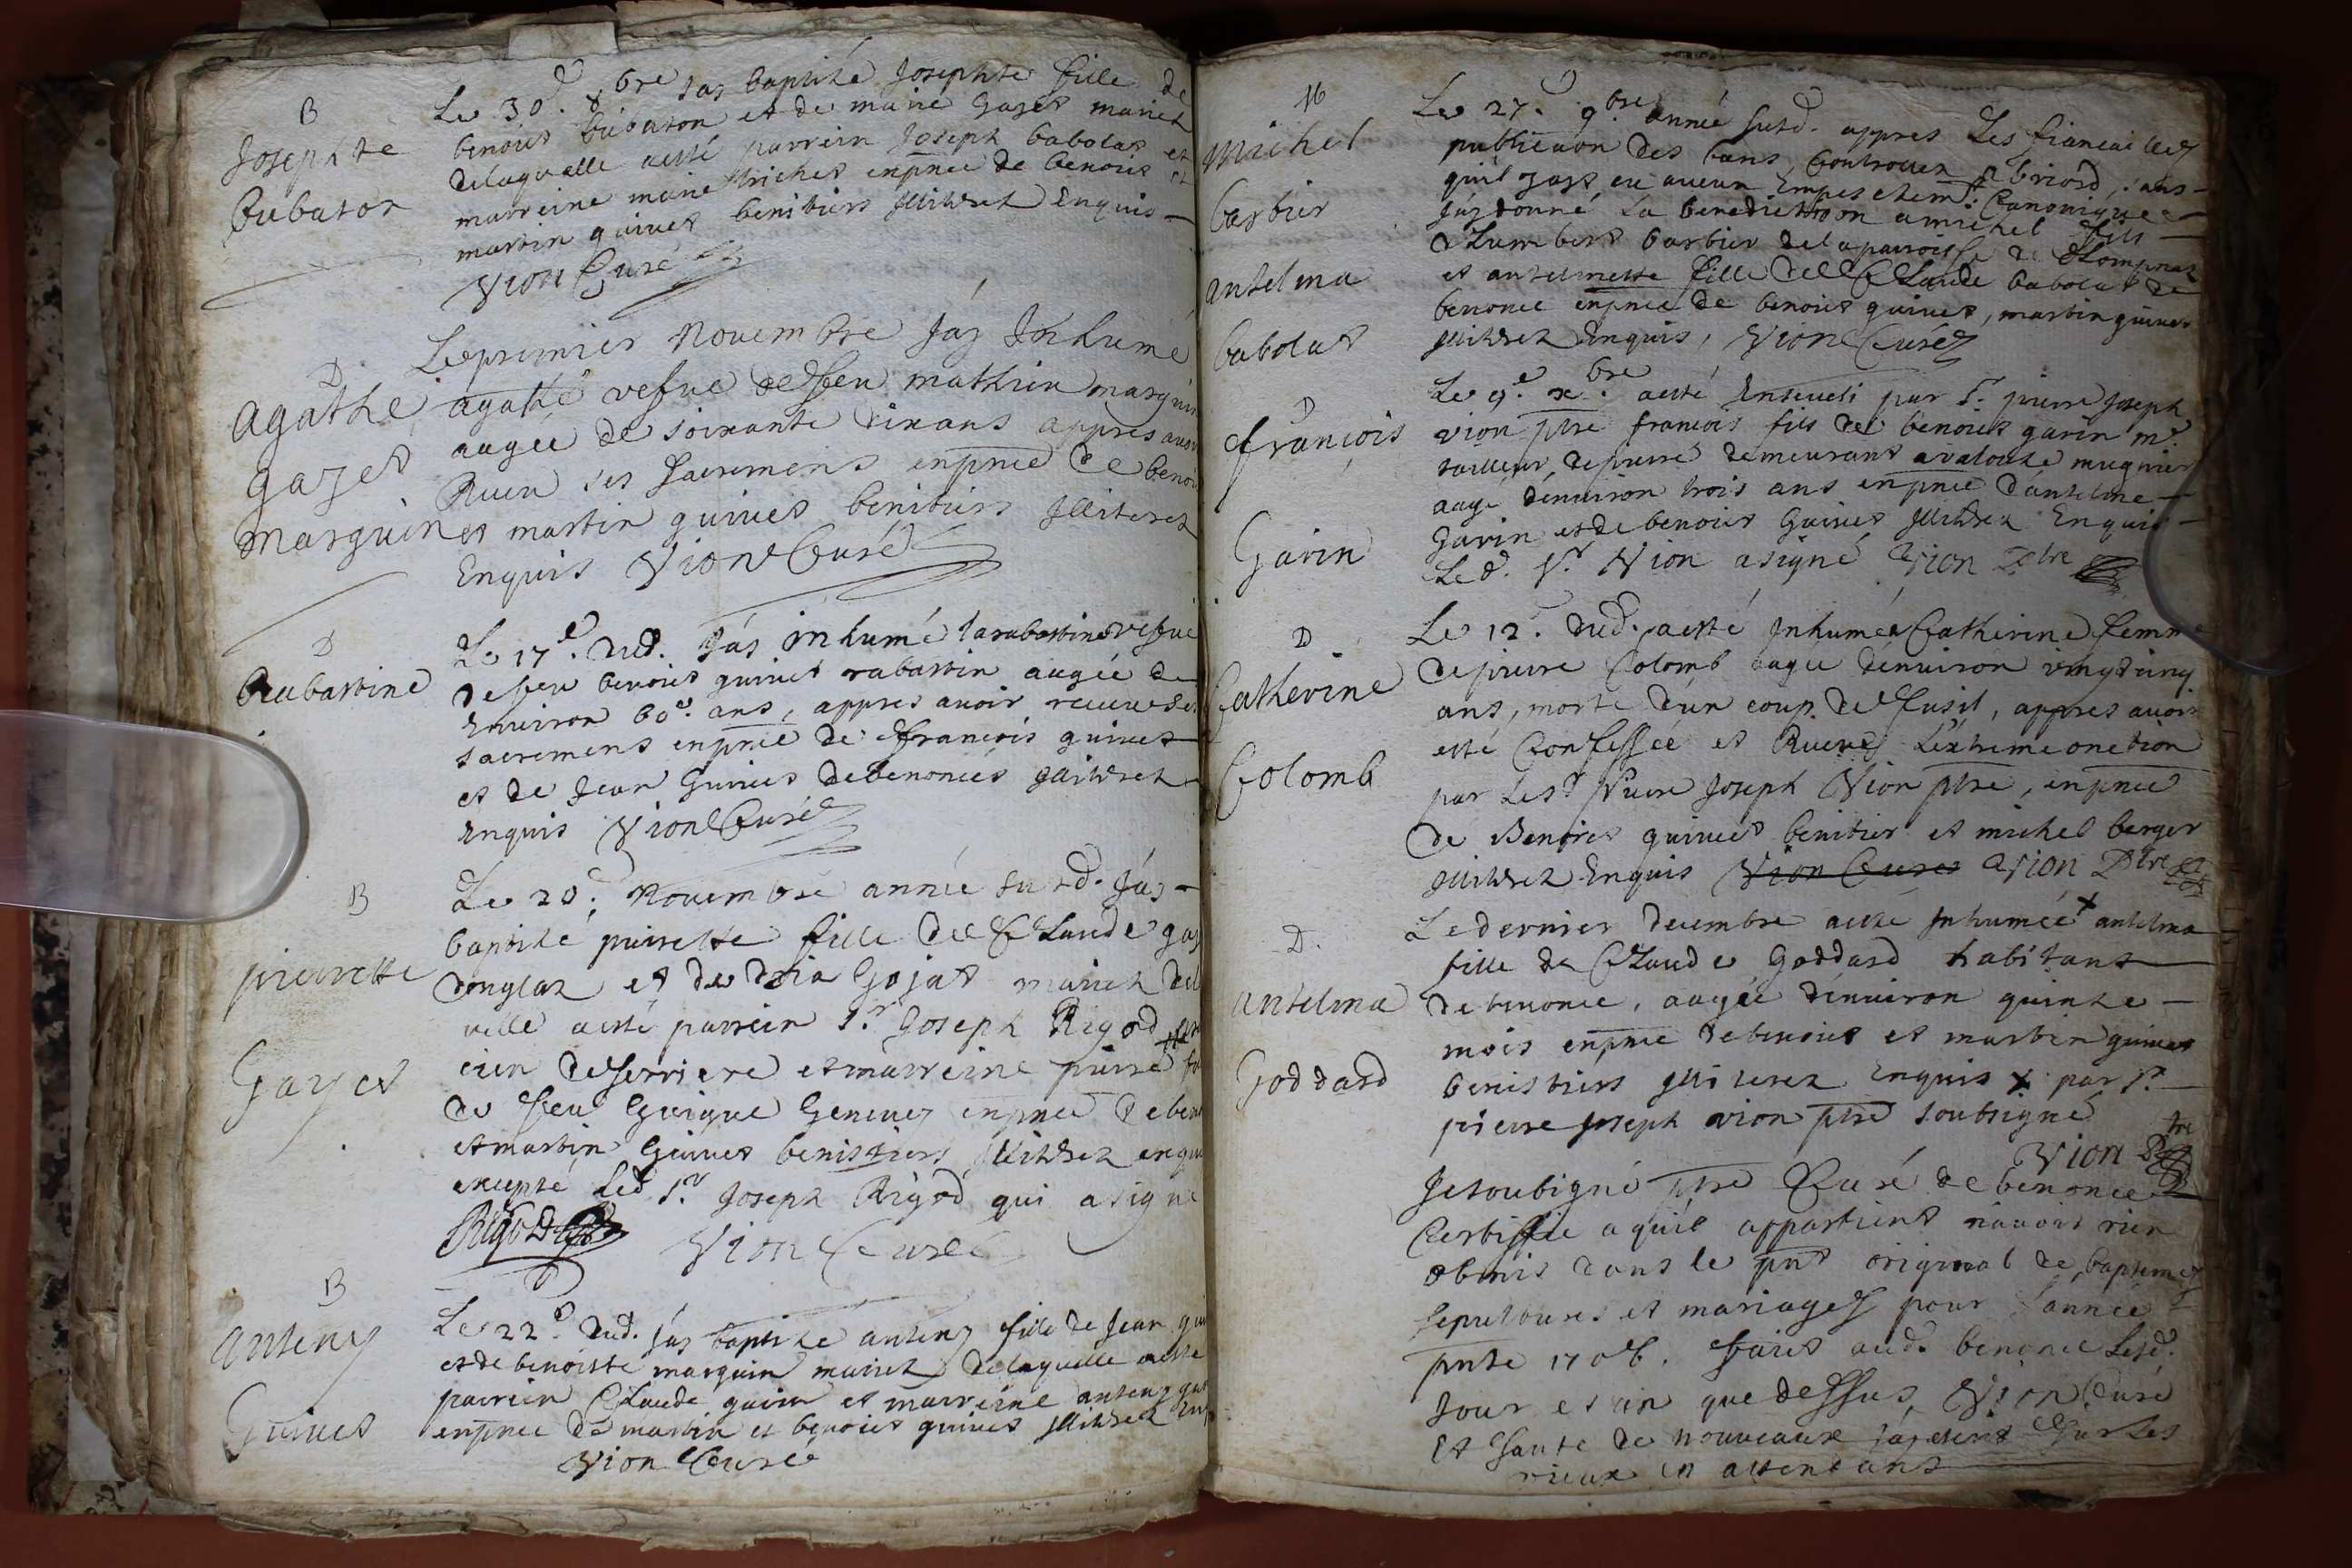 B
Josephte
Cubaton
Le 30.e 8bre jay baptisé Josephte fille de
benoist Cubaton et de marie Gayet mariez
delaquelle aesté parrein Joseph babolat et
marreine marie trichet enpnce de benoist et
martin guinet benitiers Illiterez Enquis
Vion Curé
D.
agathe
gayet
marguin
Lepremier Novembre Jay Inhumé
agathe vefue de feu mathieu marguin
aagée de soixante dix ans appres avoir
Receu ses Sacremens enpnce de benoi
et martin guinet benitiers Illiterez
Enquis Vion Curé
D
Rabastine
Le 17.e dud. Jay inhumé la rabastine vefue
defeu benoist guinet rabastin aagée de
Environ 60.e ans, appres avoir receu ses
sacremens enpnce de françois guinet
et de Jean Guinet debenonces Illiterez
Enquis Vion Curé
B
pierrette
Gayet
Le 20.e Novembre année susd. Jay
baptisé pierrette fille de Claude gay
donglas et de Gojat mariez del
uelle aesté parrein S.r Joseph Rigod
cien deserriere et marreine pierre
de feu Guigue Genevey enpnce de beno
et martin Guinet benistiers Illiterez enqui
excepté Led S.r Joseph Rigod qui a signé
Rigod Vion Curé
B
anteny
Guinet
Le 22.e dud. jay baptisé anteny fille de Jean gui
et de benoiste marguin mariez delaquelle aesté
parrein Claude guin et marreine anteny gui
enpnce de martin et benoist guinet Illiterez Enq
Vion Curé
M
Michel
barbier
antelma
babolat
Le 27.e 9bre année susd. appres Les fiancailles
publication des bans Controller a briord, sans
quil yayt eu aucun Empeschem.t Canonique
Jay donné La benediction a michel fils
dhumbert barbier delaparroisse de Lompnas
et antelmette fille de Claude babolat de
benonce enpnce de benoist guinet, martin guinet
Illiterez Enquis, Vion Curé
D
françois
Garin
Le 9.e xbre aesté Enseveli par S.r pierre Joseph
vion ptre francois fils de benoist garin m.e
tailleur depierre demeurant mugnier
aagé denviron trois ans enpnce dantelme
Garin et de benoist Guinet Illiterez Enquis
Led. S.r Vion a signé Vion Ptre
D
Catherine
Colomb
Le 12.e dud. aesté Inhumée Catherine femme
depierre Colomb aagée denviron vingtcinq
ans, morte dun coup de fusil, appres avoir
esté Confessée et Receue Lextreme onction
par Les.r Pierre Joseph Vion ptre, enpnce
de Benoist guinet benitier et michel berger
Illiterez Enquis Vion Curé Vion Ptre
D.
Antelma
Goddard
Ledernier decembre aesté Inhumée x antelma
fille de Claude Goddard habitant
debenonce, aagée denviron quinze
mois enpnce debenoist et martin guinet
benistiers Illiterez Enquis x par S.r
pierre Joseph vion ptre soubsigné
Vion Ptre
Jesoubsigné ptre Curé de benonce
Certiffie aquil appartient navoir rien
obmis dans le pnt original de baptemes
sepultures et mariages pour Lannée
pnte 1706. fait aud. benonce Lesd.
Jour et an que dessus, Vion Curé
Et faute de nouveaux Sur Les
vieux en attendant